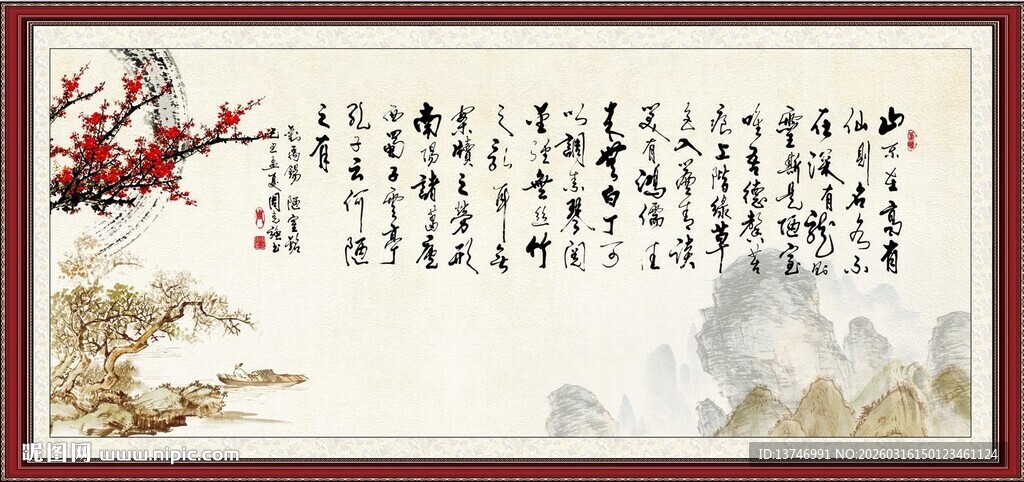 山不在高有
仙則名水不
在深有龍則
靈斯是陋室
唯吾德馨苔
痕上階綠草
色入簾青談
笑有鴻儒往
來無白丁可
以調素琴閱
金經無絲竹
之亂耳無
案牘之勞形
南陽諸葛廬
西蜀子雲亭
孔子云何陋
之有
劉禹錫 陋室銘
己丑孟夏周
昵图网 www.nipic.com
ID:13746991 NO:20260316150123461124